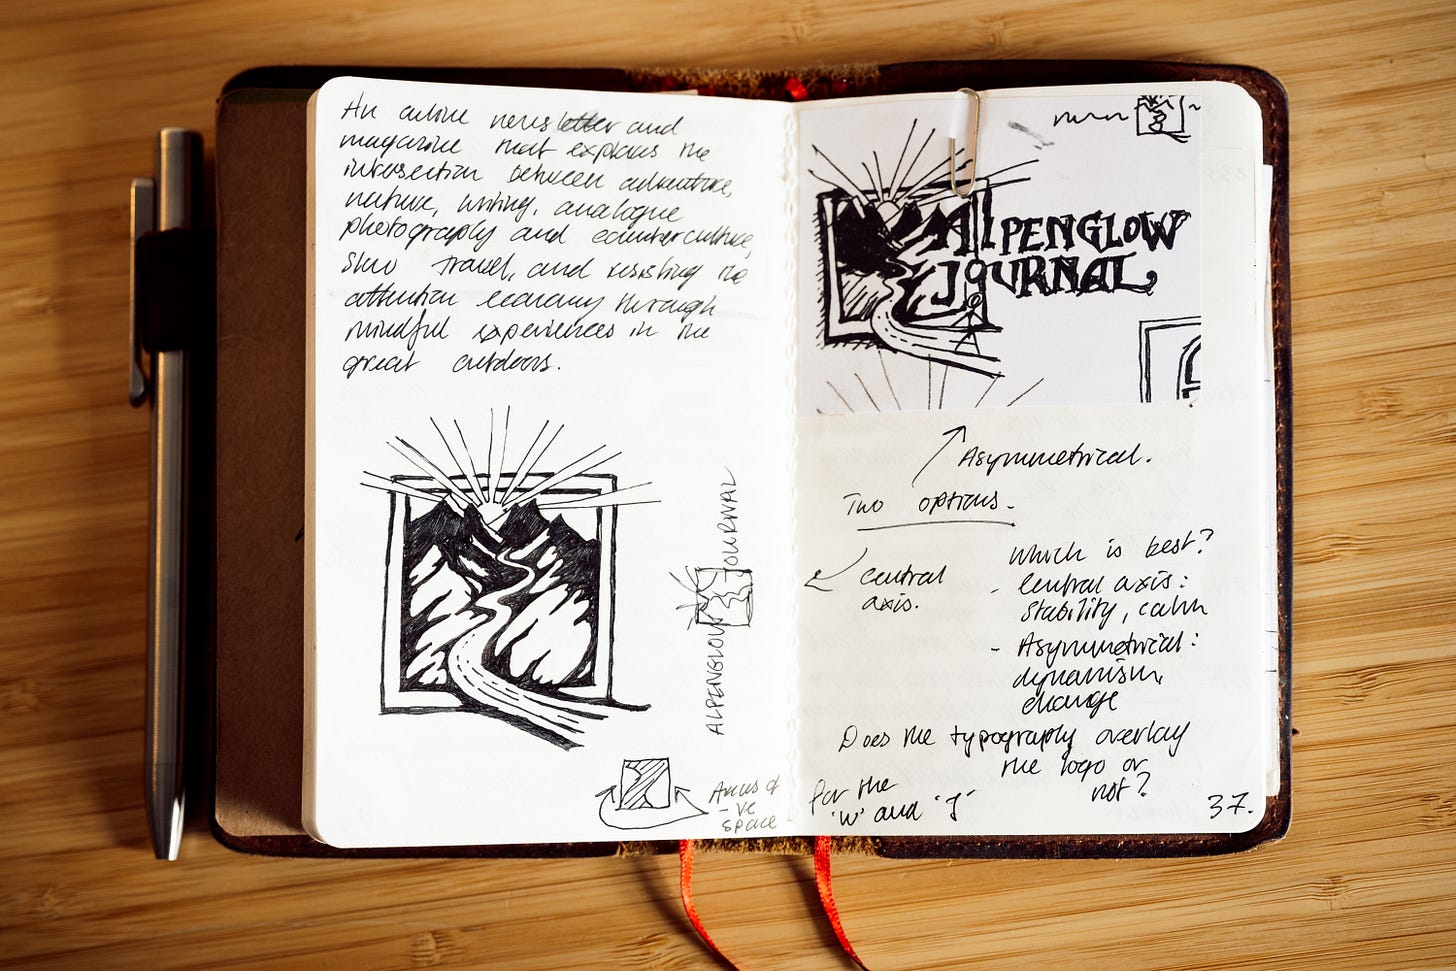 An online newsletter and
magazine that explores the
intersection between adventure,
nature, writing, analogue
photography and counterculture,
slow travel, and resisting the
attention economy through
mindful experiences in the
great outdoors.
ALPENGLOW JOURNAL
Areas of
-ve
space
ALPENGLOW
JOURNAL
Asymmetrical.
Two options.
Central
axis.
Which is best?
- Central axis:
Stability, calm
- Asymmetrical:
dynamism,
change
Does the typography overlay
the logo or
not?
for the
'W' and 'J'
37.